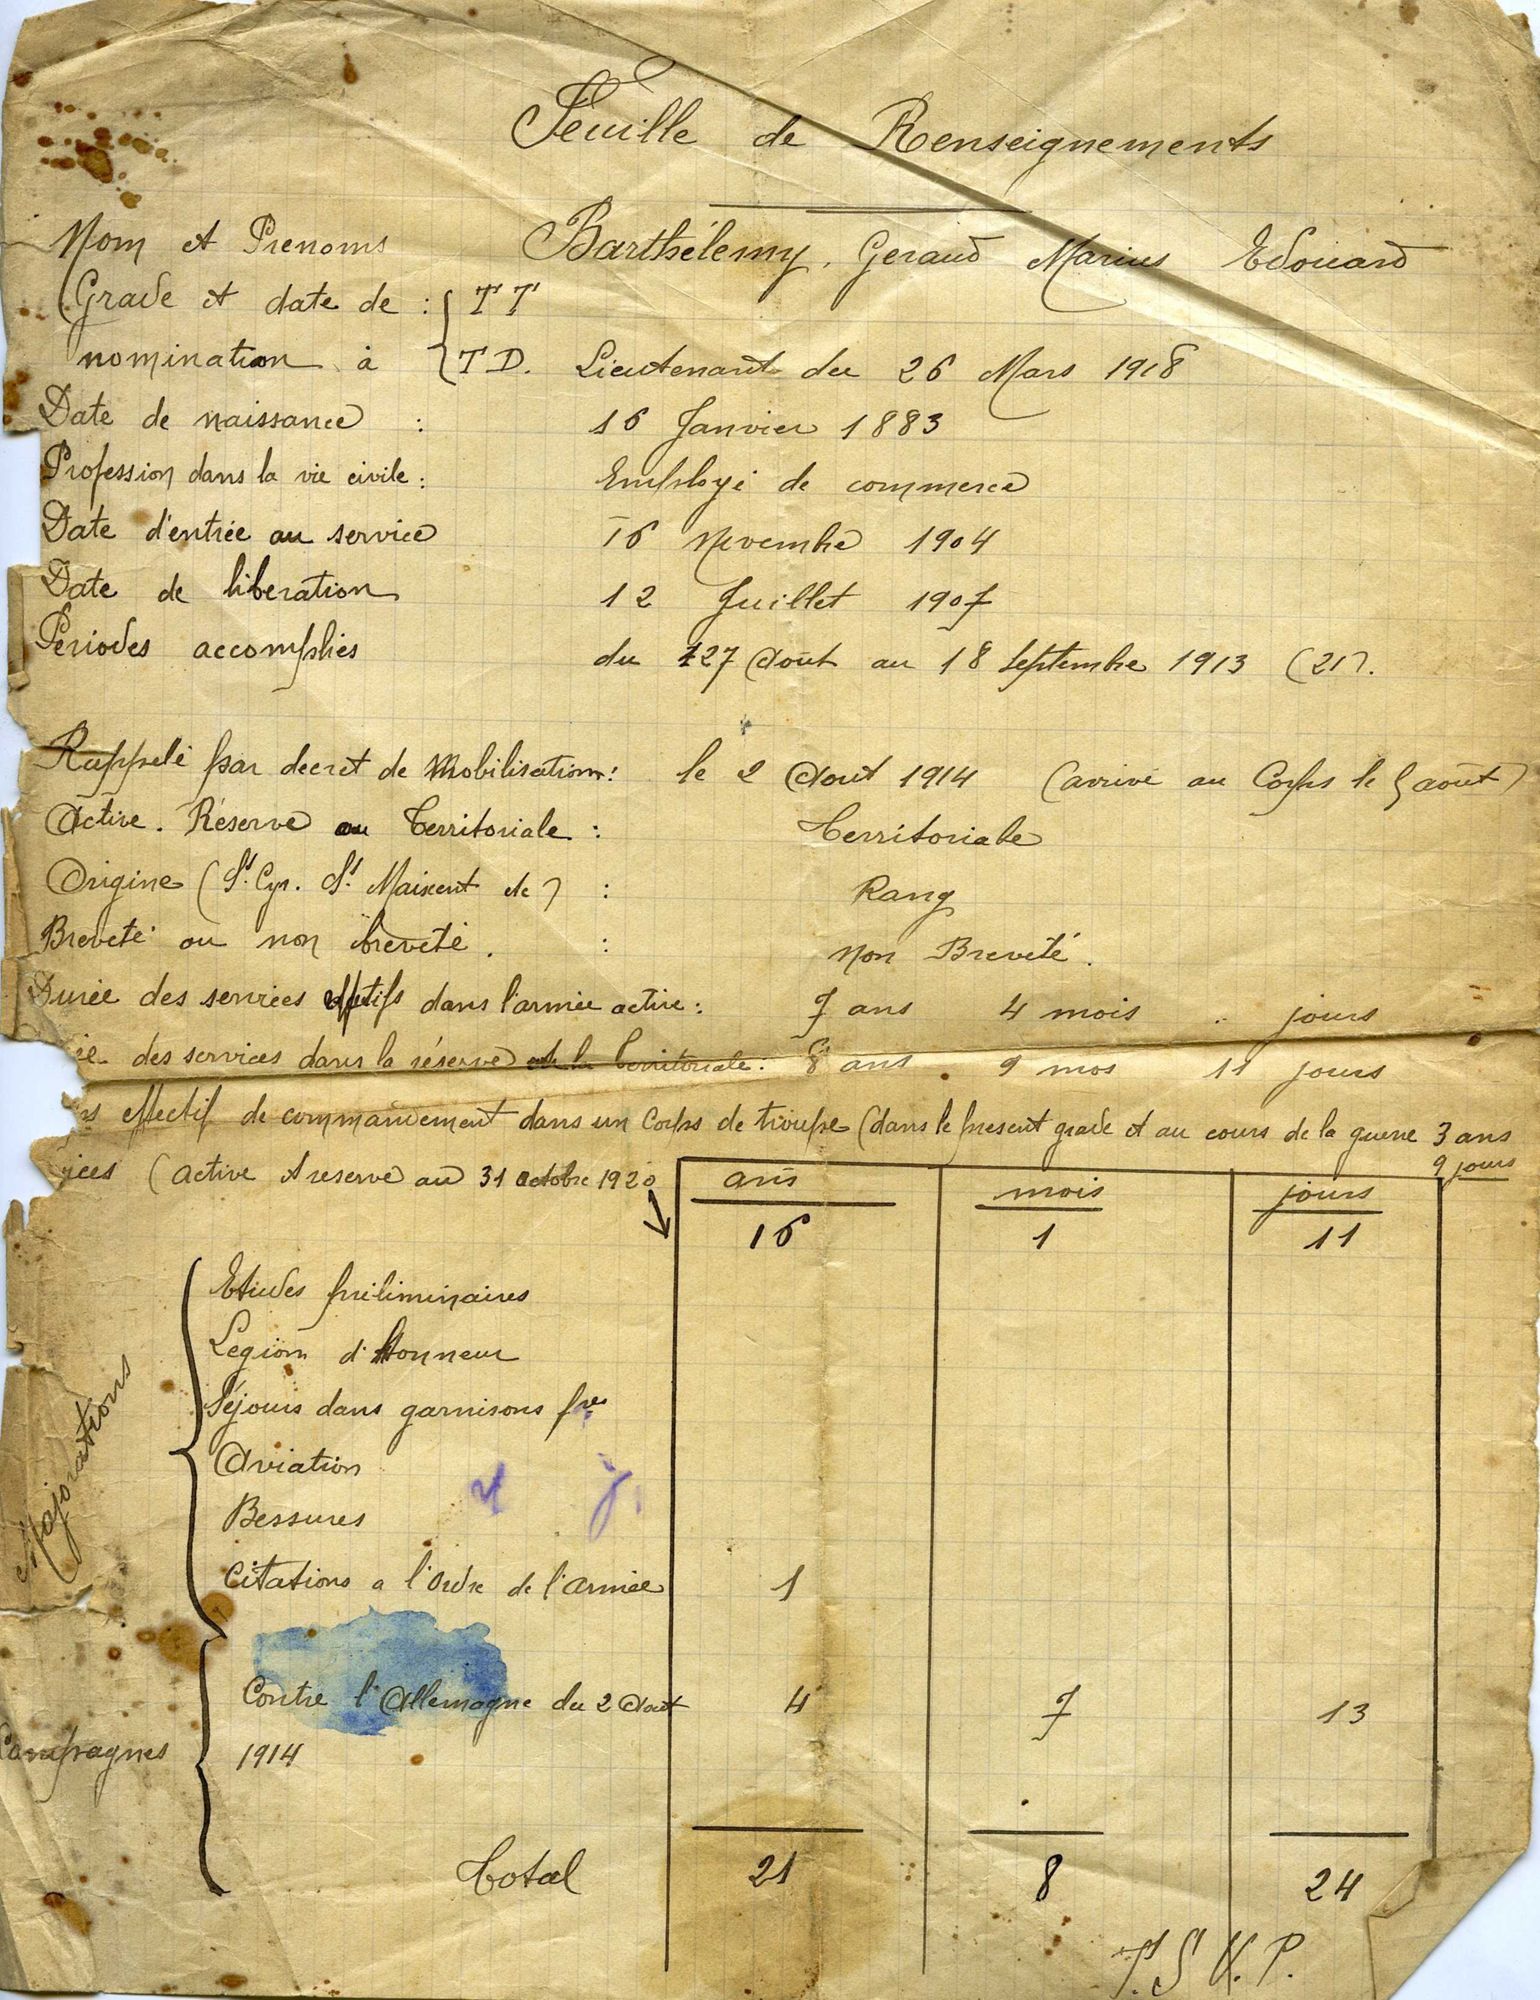 Feuille de Renseignements
Nom et Prenoms Barthélemy, Geraud Marius Edouard
Grade et date de : { TT
nomination à { TD. Lieutenant du 26 Mars 1918
Date de naissance : 16 Janvier 1883
Profession dans la vie civile : Employé de commerce
Date d'entrée au service 16 Novembre 1904
Date de libération 12 Juillet 1907
Periodes accomplies du 27 Août au 18 Septembre 1913 (21).
Rappelé par decret de Mobilisation : le 2 Aout 1914 (arrivé au Corps le 5 août)
Active. Réserve ou Territoriale : Territoriale
Origine (St. Cyr. St. Maixent etc) : Rang
Breveté ou non breveté. : Non Breveté.
Durée des services effectifs dans l'armée active : 7 ans 4 mois .. jours
des services dans la réserve et la territoriale : 8 ans 9 mos 11 jours
effectif de commandement dans un Corps de troupe (dans le présent grade et au cours de la guerre 3 ans
9 jours
(active et reserve au 31 octobre 1920 ans mois jours
16 1 11
Majorations
Etudes préliminaires
Legion d'Honneur
Séjours dans garnisons fres
Aviation
Bessures
Citations a l'Ordre de l'Armée 1
Campagnes
Contre l'Allemagne du 2 Aout 4 7 13
1914
Total 21 8 24
T.S.V.P.